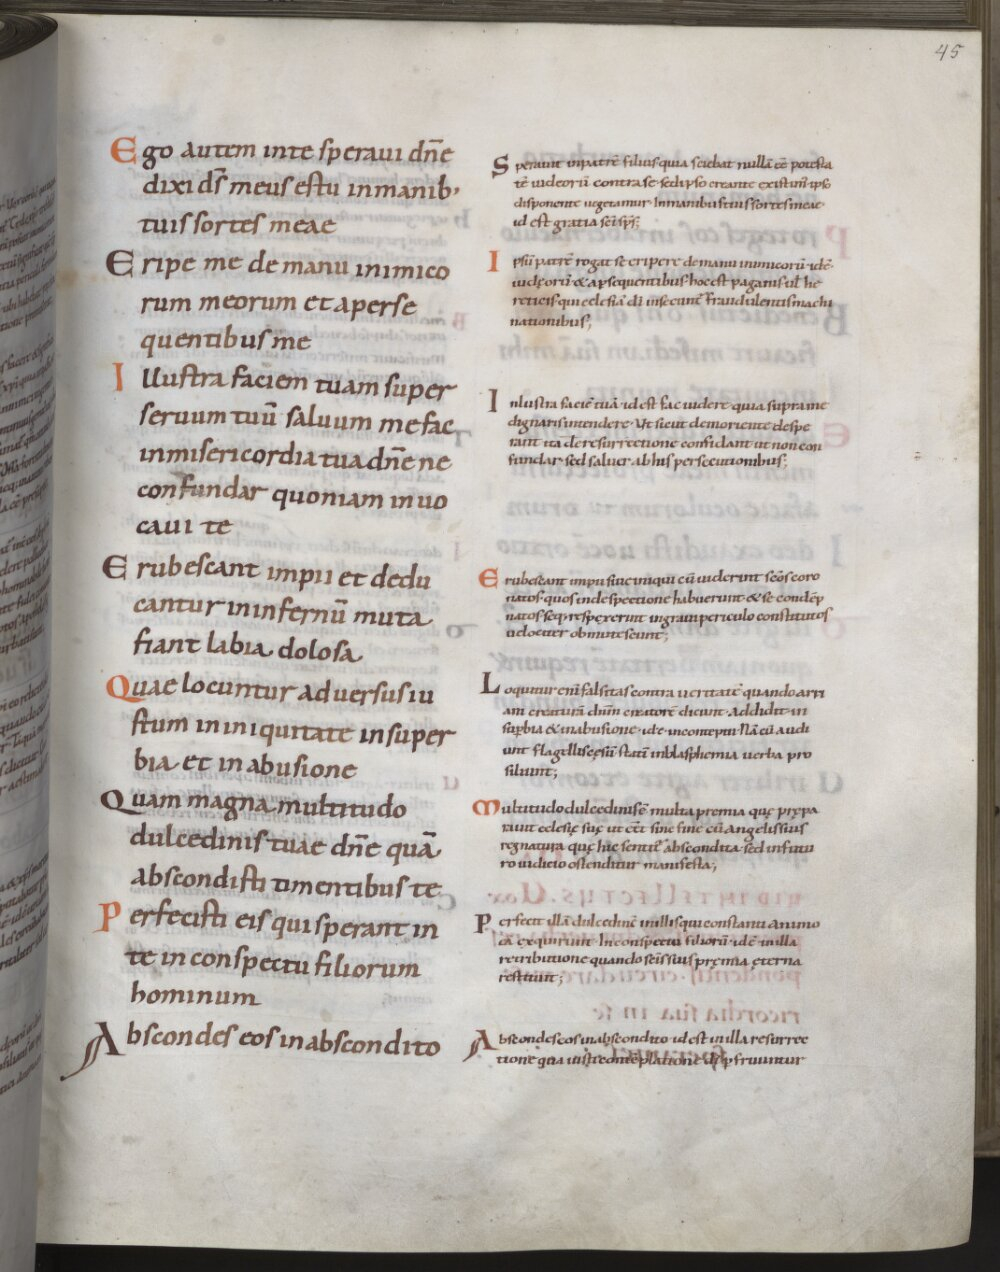 45
Ego autem inte speraui dn̄e
dixi ds̄ meus estu inmanib;
tuis sortes meae
Eripe me de manu inimico
rum meorum et aperse
quentibus me
Illustra faciem tuam super
seruum tuū saluum me fac
in misericordia tua dn̄e ne
confundar quoniam inuo
caui te
Erubescant impii et dedu
cantur in infernū muta
fiant labia dolosa
Quae locuntur aduersus iu
stum in iniquitate in super
bia et in abusione
Quam magna multitudo
dulcedinis tuae dn̄e quā
abscondisti timentibus te
Perfecisti eis qui sperant in
te in conspectu filiorum
hominum
Abscondes eos in abscondito
Sperauit in patrē filius quia sciebat nullā eē potesta
tē uideorū contra se sed ipso creante
disponente uegetamur. In manibus tuis sortes meae
id est gratia sc̄i sp̄s;
Ipsū patrē rogat se eripere de manu inimicorū idē
iudęorū & apsequentibus hoc est paganis uł he
reticis qui eclesiā dī insecunt fraudulentis machi
nationibus;
Inlustra faciē tuā id est fac uidere quia supra me
dignaris intendere. Ut sicut de moriente despe
rant ita de resurrectione confidant ut non con
fundar sed saluer ab his persecutionibus;
Erubescant impii siue iniqui cū uiderint sc̄os coro
natos quos in despectione habuerunt & se condēp
natos seq; respexerint in graui periculo constitutos
uelociter obmutescunt;
Loquitur enī falsitas contra ueritatē quando arri
ani creaturā dnm̄ creatorē dicunt. Addidit in
supbia & in abusione id ē in contēptu. Nā cū audi
unt flagellis cęsū statī in blasphemia uerba pro
siliunt;
Multitudo dulcedinis ē multa premia quę prępa
rauit eclesię suę ut cū angelis suis
regnatura quę hic sentit abscondita sed in futu
ro iudicio ostenditur manifesta;
Perfecit illā dulcedinē in illis qui constanti animo
eā exquirunt. In conspectu filiorū id ē in illa
retributione quando sc̄is suis pręmia ęterna
restituit;
Abscondes eos in abscondito id est in illa resurrec
tione qua iusti contēplatione perfruuntur